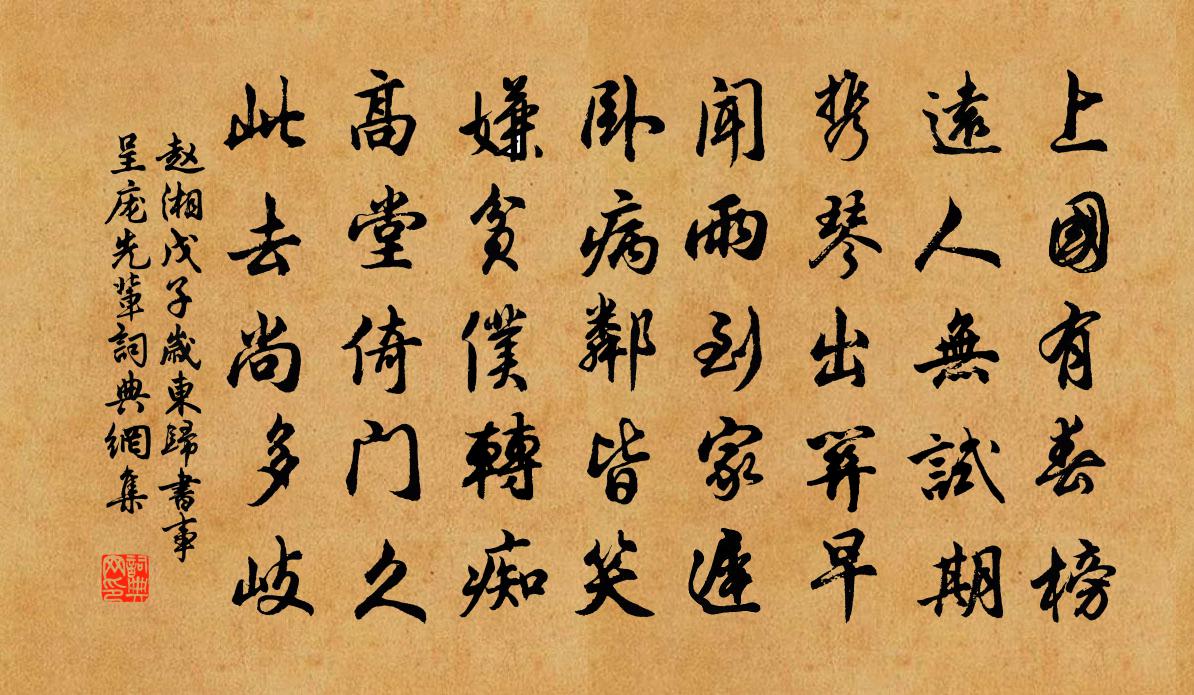 上國有春榜
遠人無試期
携琴出關早
聞雨到家遲
臥病鄰皆笑
嫌貧僕轉痴
高堂倚門久
此去尚多岐
赵湘戊子歲東歸書事
呈庞先輩詞典網集
詞典网印